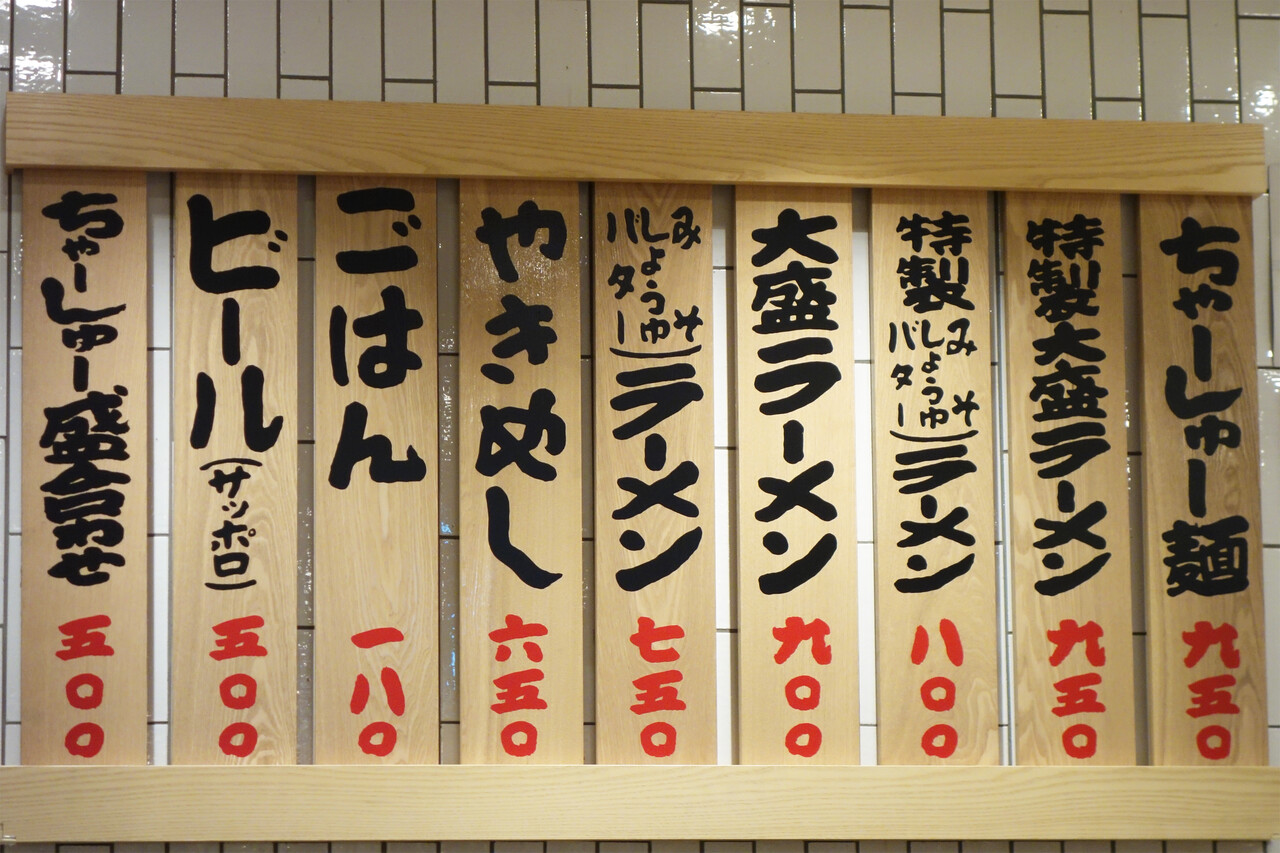 ちゃーしゅー麺 九五〇
特製大盛ラーメン 九五〇
特製(みそ しょうゆ バター)ラーメン 八〇〇
大盛ラーメン 九〇〇
(みそ しょうゆ バター)ラーメン 七五〇
やきめし 六五〇
ごはん 一八〇
ビール(サッポロ) 五〇〇
ちゃーしゅー盛合わせ 五〇〇